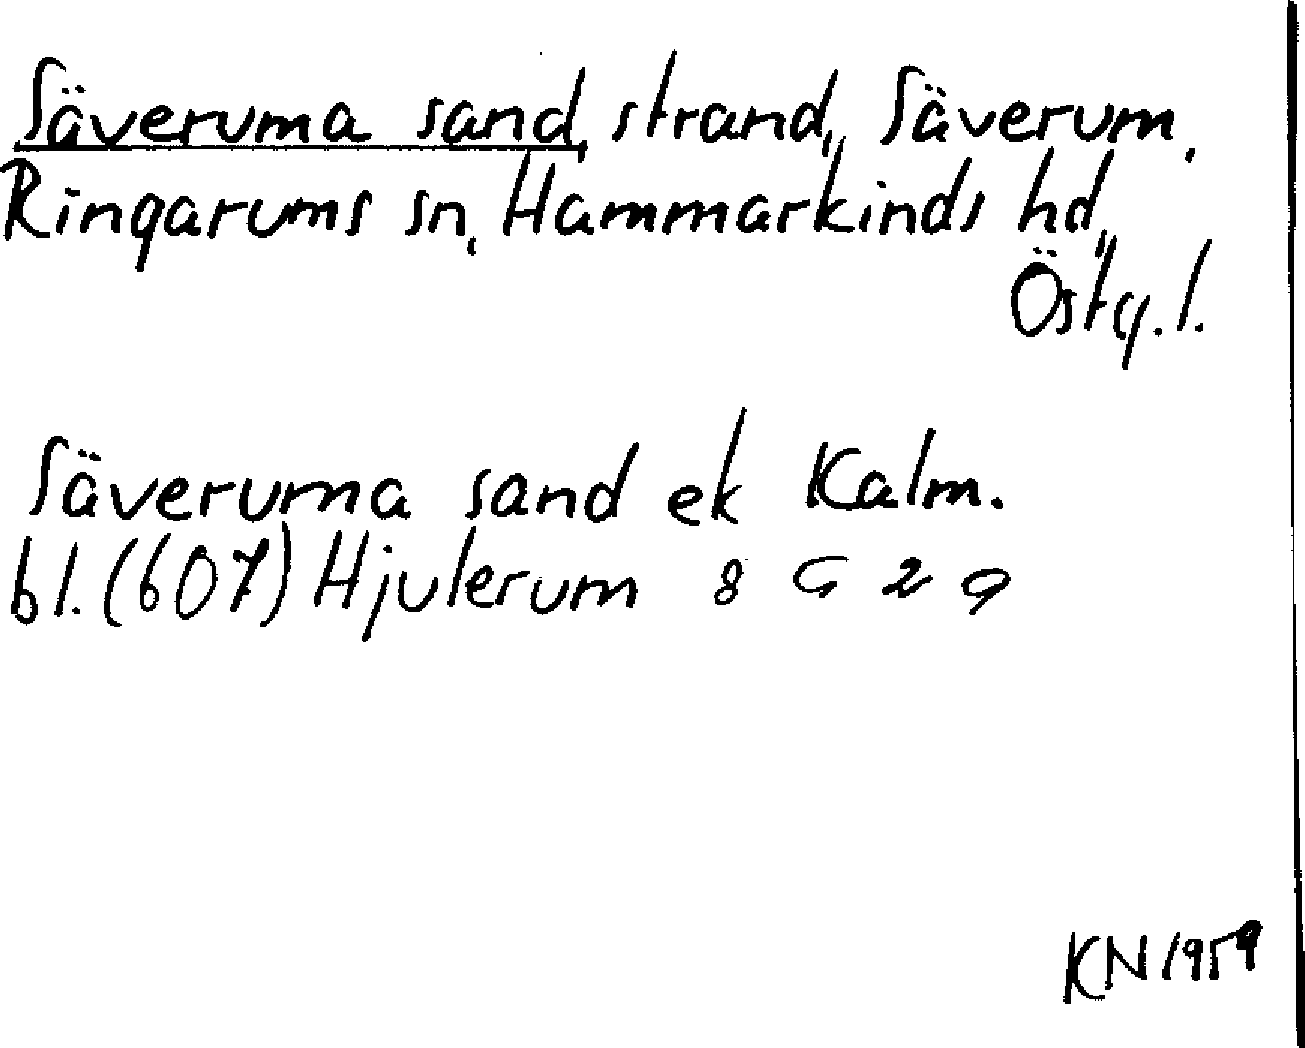 Säveruma sand, strand, Säverum,
Ringarums sn, Hammarkinds hd,
Östg. l.
Säveruma sand ek Kalm.
bl. (607) Hjulerum 8 G 2 g
KN 1959